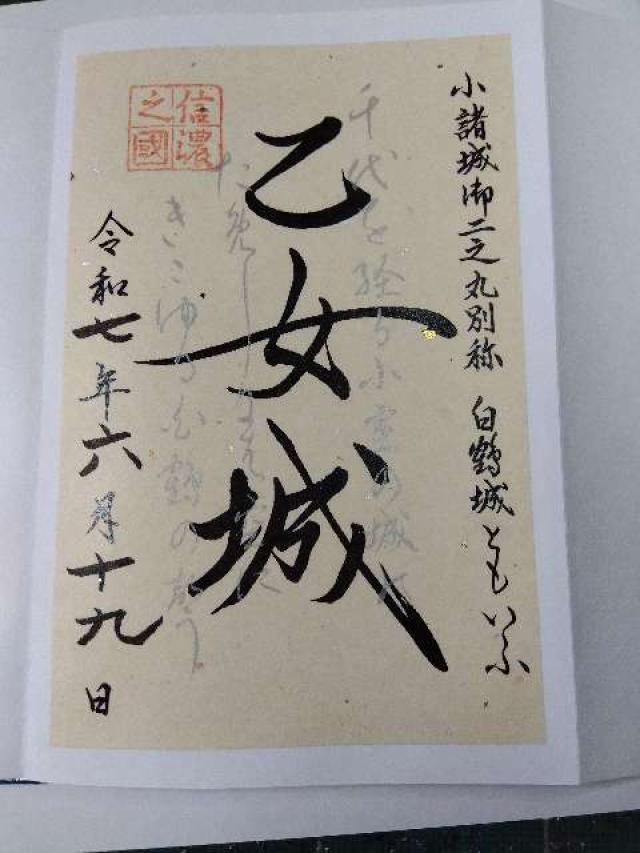 小諸城御二之丸別称 白鶴城ともいふ
千代を経る小雲の城は
乙女城
きこゆる白鶴の声
信濃之國
令和七年六月十九日